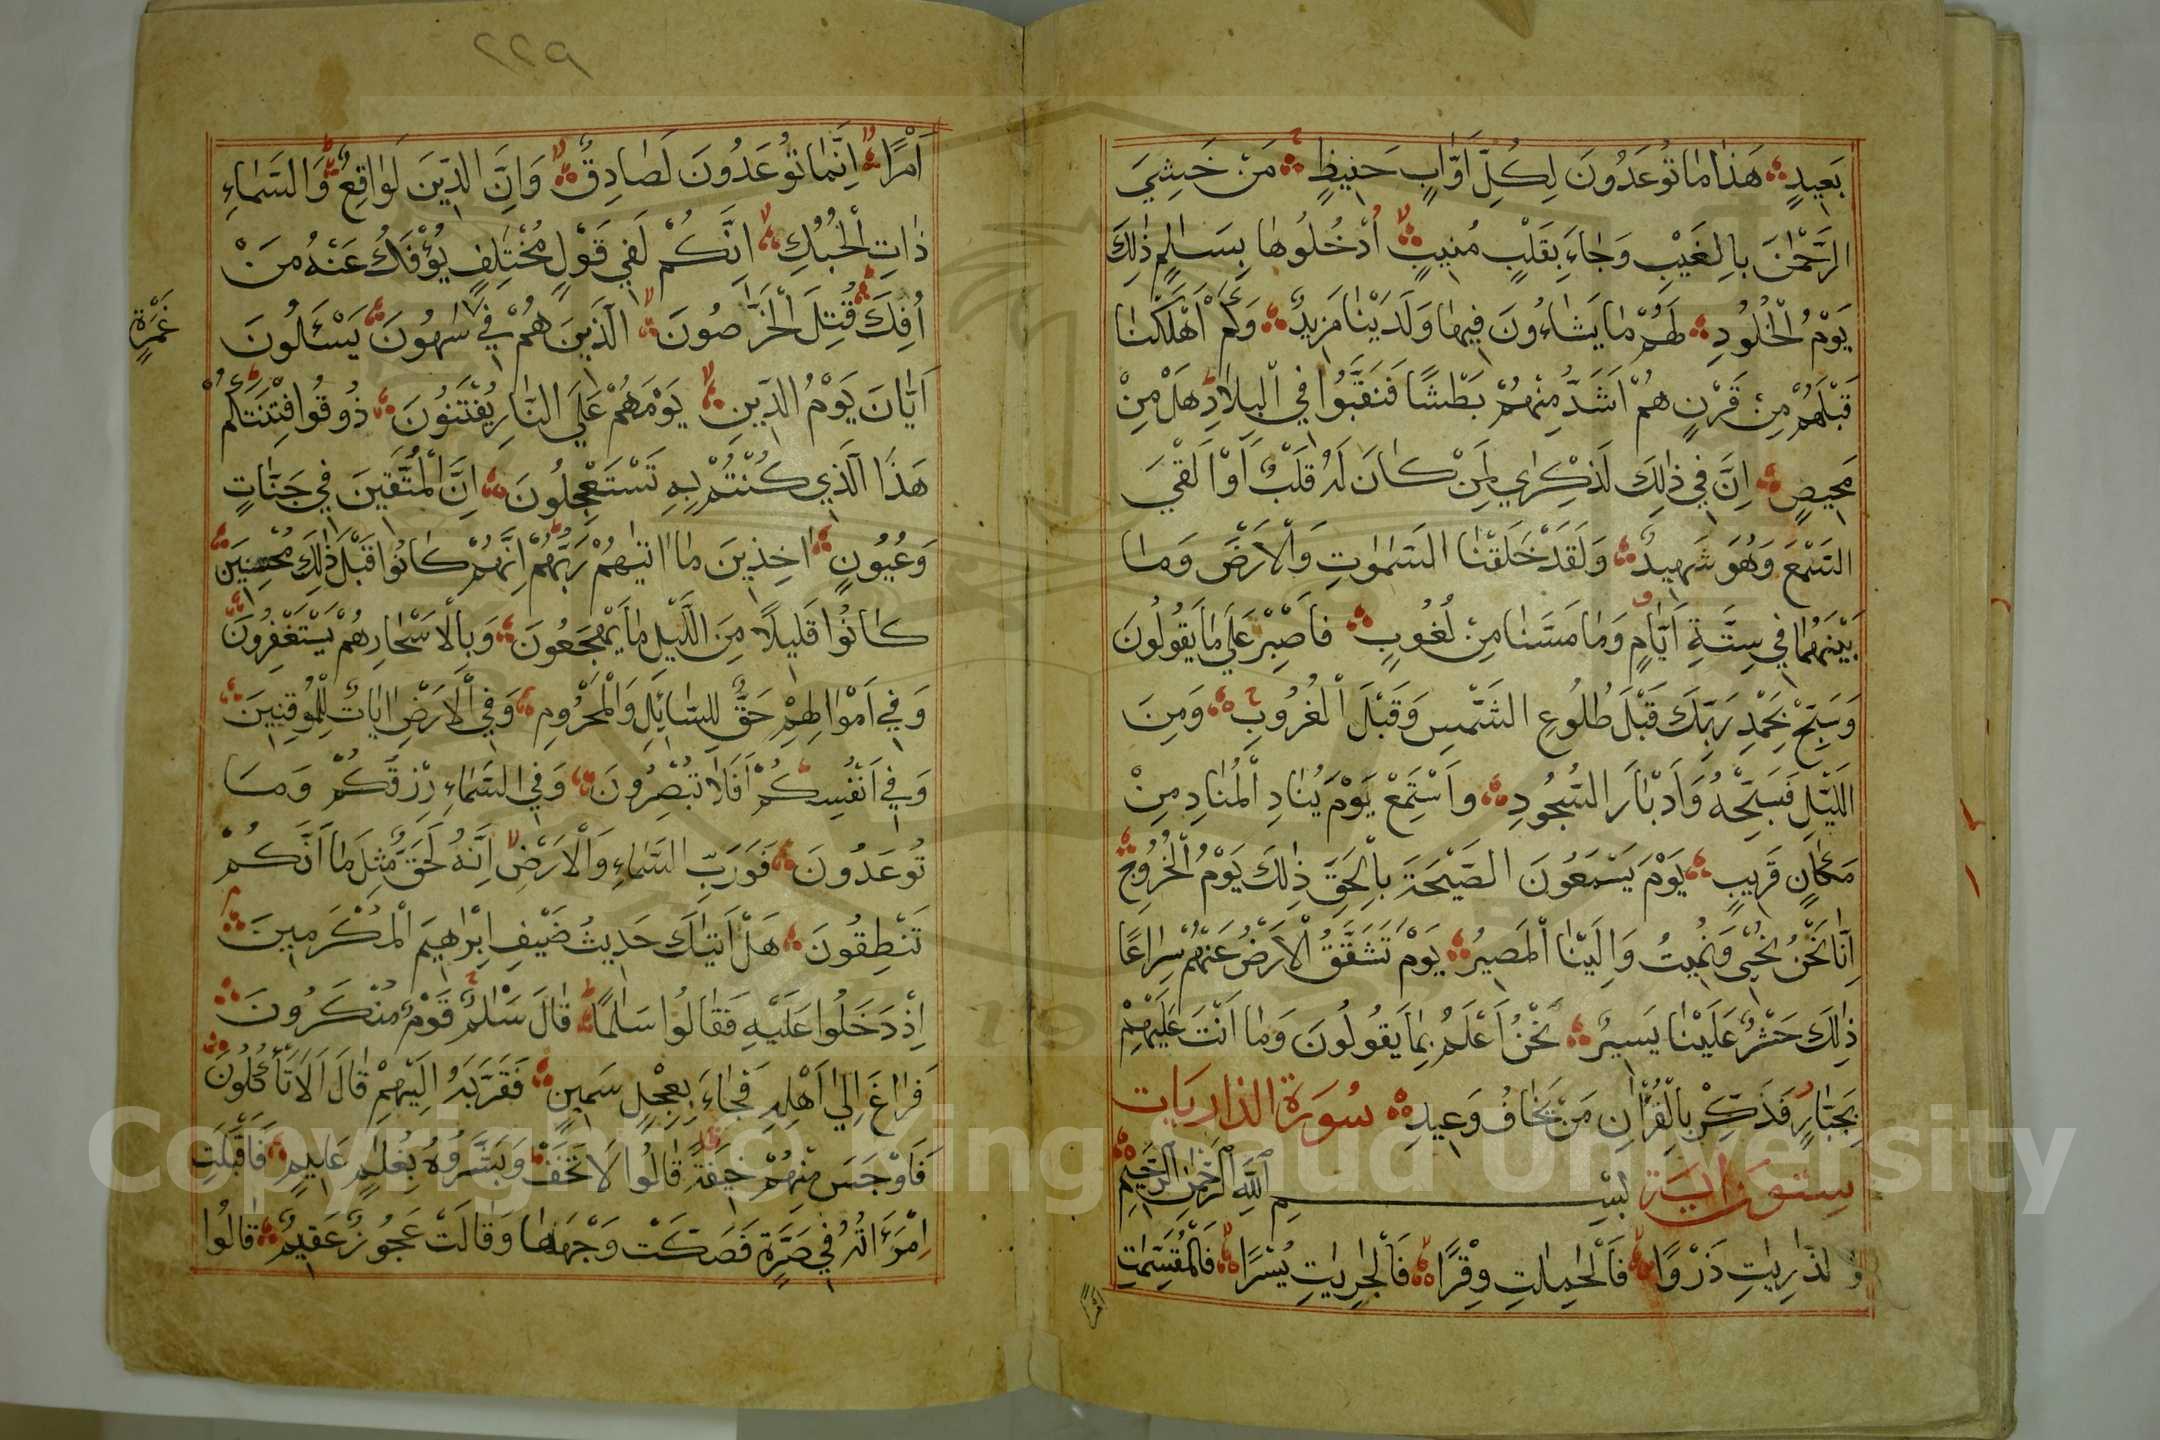 بَعِيدٍ هَذَا مَا تُوعَدُونَ لِكُلِّ اَوَّابٍ حَفِيظٍ مَنْ خَشِيَ
الرَّحْمٰنَ بِالْغَيْبِ وَجَاءَ بِقَلْبٍ مُنِيبٍ اُدْخُلُوهَا بِسَلَامٍ ذٰلِكَ
يَوْمُ الْخُلُودِ لَهُمْ مَا يَشَاءُونَ فِيهَا وَلَدَيْنَا مَزِيدٌ وَكَمْ اَهْلَكْنَا
قَبْلَهُمْ مِنْ قَرْنٍ هُمْ اَشَدُّ مِنْهُمْ بَطْشًا فَنَقَّبُوا فِي الْبِلَادِ هَلْ مِنْ
مَحِيصٍ اِنَّ فِي ذٰلِكَ لَذِكْرٰي لِمَنْ كَانَ لَهُ قَلْبٌ اَوْ اَلْقَي
السَّمْعَ وَهُوَ شَهِيدٌ وَلَقَدْ خَلَقْنَا السَّمٰوٰتِ وَالْاَرْضَ وَمَا
بَيْنَهُمَا فِي سِتَّةِ اَيَّامٍ وَمَا مَسَّنَا مِنْ لُغُوبٍ فَاصْبِرْ عَلَي مَا يَقُولُونَ
وَسَبِّحْ بِحَمْدِ رَبِّكَ قَبْلَ طُلُوعِ الشَّمْسِ وَقَبْلَ الْغُرُوبِ وَمِنَ
اللَّيْلِ فَسَبِّحْهُ وَاَدْبَارَ السُّجُودِ وَاسْتَمِعْ يَوْمَ يُنَادِ الْمُنَادِ مِنْ
مَكَانٍ قَرِيبٍ يَوْمَ يَسْمَعُونَ الصَّيْحَةَ بِالْحَقِّ ذٰلِكَ يَوْمُ الْخُرُوجِ
اِنَّا نَحْنُ نُحْيِ وَنُمِيتُ وَاِلَيْنَا الْمَصِيرُ يَوْمَ تَشَقَّقُ الْاَرْضُ عَنْهُمْ سِرَاعًا
ذٰلِكَ حَشْرٌ عَلَيْنَا يَسِيرٌ نَحْنُ اَعْلَمُ بِمَا يَقُولُونَ وَمَا اَنْتَ عَلَيْهِمْ
بِجَبَّارٍ فَذَكِّرْ بِالْقُرْاٰنِ مَنْ يَخَافُ وَعِيدِ سُورَة الذاريَات
ستون اية بِسْمِ اللّٰهِ الرَّحْمٰنِ الرَّحِيمِ
وَالذَّارِيٰتِ ذَرْوًا فَالْحٰمِلٰتِ وِقْرًا فَالْجٰرِيٰتِ يُسْرًا فَالْمُقَسِّمٰتِ
امرا
٢٢٩
اَمْرًا اِنَّمَا تُوعَدُونَ لَصَادِقٌ وَاِنَّ الدِّينَ لَوَاقِعٌ وَالسَّمَاءِ
ذَاتِ الْحُبُكِ اِنَّكُمْ لَفِي قَوْلٍ مُخْتَلِفٍ يُؤْفَكُ عَنْهُ مَنْ
اُفِكَ قُتِلَ الْخَرَّاصُونَ الَّذِينَ هُمْ فِي سَاهُونَ يَسْئَلُونَ
غَمْرَةٍ
اَيَّانَ يَوْمُ الدِّينِ يَوْمَ هُمْ عَلَي النَّارِ يُفْتَنُونَ ذُوقُوا فِتْنَتَكُمْ
هَذَا الَّذِي كُنْتُمْ بِهِ تَسْتَعْجِلُونَ اِنَّ الْمُتَّقِينَ فِي جَنَّاتٍ
وَعُيُونٍ اٰخِذِينَ مَا اٰتٰيهُمْ رَبُّهُمْ اِنَّهُمْ كَانُوا قَبْلَ ذٰلِكَ مُحْسِنِينَ
كَانُوا قَلِيلًا مِنَ اللَّيْلِ مَا يَهْجَعُونَ وَبِالْاَسْحَارِ هُمْ يَسْتَغْفِرُونَ
وَفِي اَمْوَالِهِمْ حَقٌّ لِلسَّائِلِ وَالْمَحْرُومِ وَفِي الْاَرْضِ اٰيَاتٌ لِلْمُوقِنِينَ
وَفِي اَنْفُسِكُمْ اَفَلَا تُبْصِرُونَ وَفِي السَّمَاءِ رِزْقُكُمْ وَمَا
تُوعَدُونَ فَوَرَبِّ السَّمَاءِ وَالْاَرْضِ اِنَّهُ لَحَقٌّ مِثْلَ مَا اَنَّكُمْ
تَنْطِقُونَ هَلْ اَتٰيكَ حَدِيثُ ضَيْفِ اِبْرٰاهِيمَ الْمُكْرَمِينَ
اِذْ دَخَلُوا عَلَيْهِ فَقَالُوا سَلَامًا قَالَ سَلٰمٌ قَوْمٌ مُنْكَرُونَ
فَرَاغَ اِلَي اَهْلِهِ فَجَاءَ بِعِجْلٍ سَمِينٍ فَقَرَّبَهُ اِلَيْهِمْ قَالَ اَلَا تَأْكُلُونَ
فَاَوْجَسَ مِنْهُمْ خِيفَةً قَالُوا لَا تَخَفْ وَبَشَّرُوهُ بِغُلَامٍ عَلِيمٍ فَاَقْبَلَتِ
اِمْرَاَتُهُ فِي صَرَّةٍ فَصَكَّتْ وَجْهَهَا وَقَالَتْ عَجُوزٌ عَقِيمٌ قَالُوا
Copyright © King Saud University